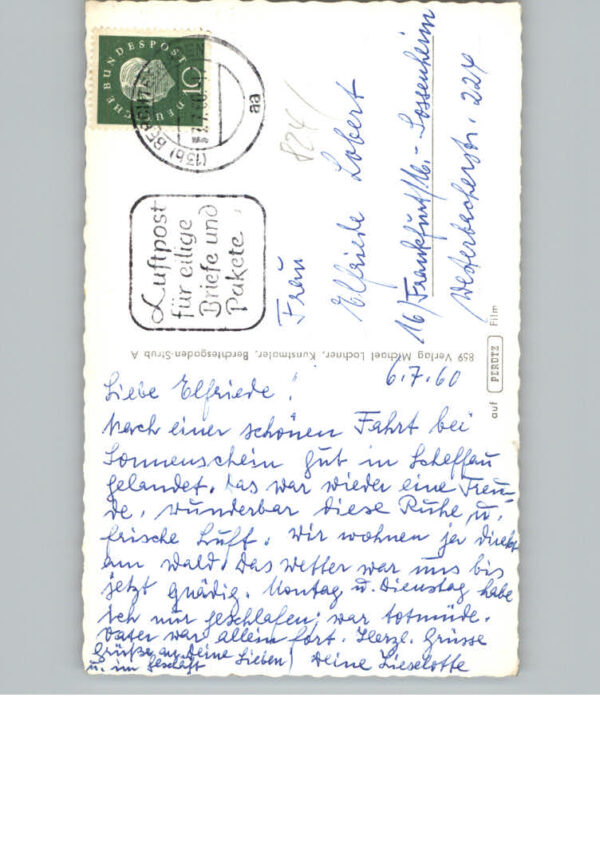 DEUTSCHE BUNDESPOST
10
(13b) BERCHTESGADEN
7.7.60
aa
Luftpost
für eilige
Briefe und
Pakete
824/
Frau
Elfriede Lobert
16) Frankfurt/M.-Sossenheim
Westerbacherstr. 224
859 Verlag Michael Lochner, Kunstmaler, Berchtesgaden-Strub A
auf PERUTZ Film
6.7.60
Liebe Elfriede!
Nach einer schönen Fahrt bei
Sonnenschein gut in Scheffau
gelandet. Das war wieder eine Freu-
de. Wunderbar diese Ruhe u.
frische Luft. Wir wohnen ja direkt
am Wald. Das Wetter war uns bis
jetzt gnädig. Montag u. Dienstag habe
ich nur geschlafen, war totmüde.
Vater war allein fort. Herzl. Grüsse
Deine Lieselotte
Grüße an Deine Lieben!
u. im Geschäft